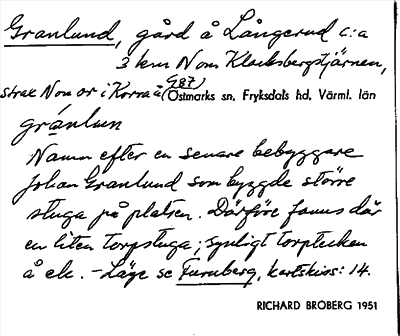 Granlund, gård å Långerud c:a
3 km N om Klocksbergstjärnen,
strax N om or i Korra å (S87) Östmarks sn, Fryksdals hd, Värml. län
gránlun
Namn efter en senare bebyggare
Johan Granlund som byggde större
stuga på platsen. Därföre fanns där
en liten torpstuga; synligt torptecken
å ek. - Läge se Furuberg, kartskiss: 14.
RICHARD BROBERG 1951